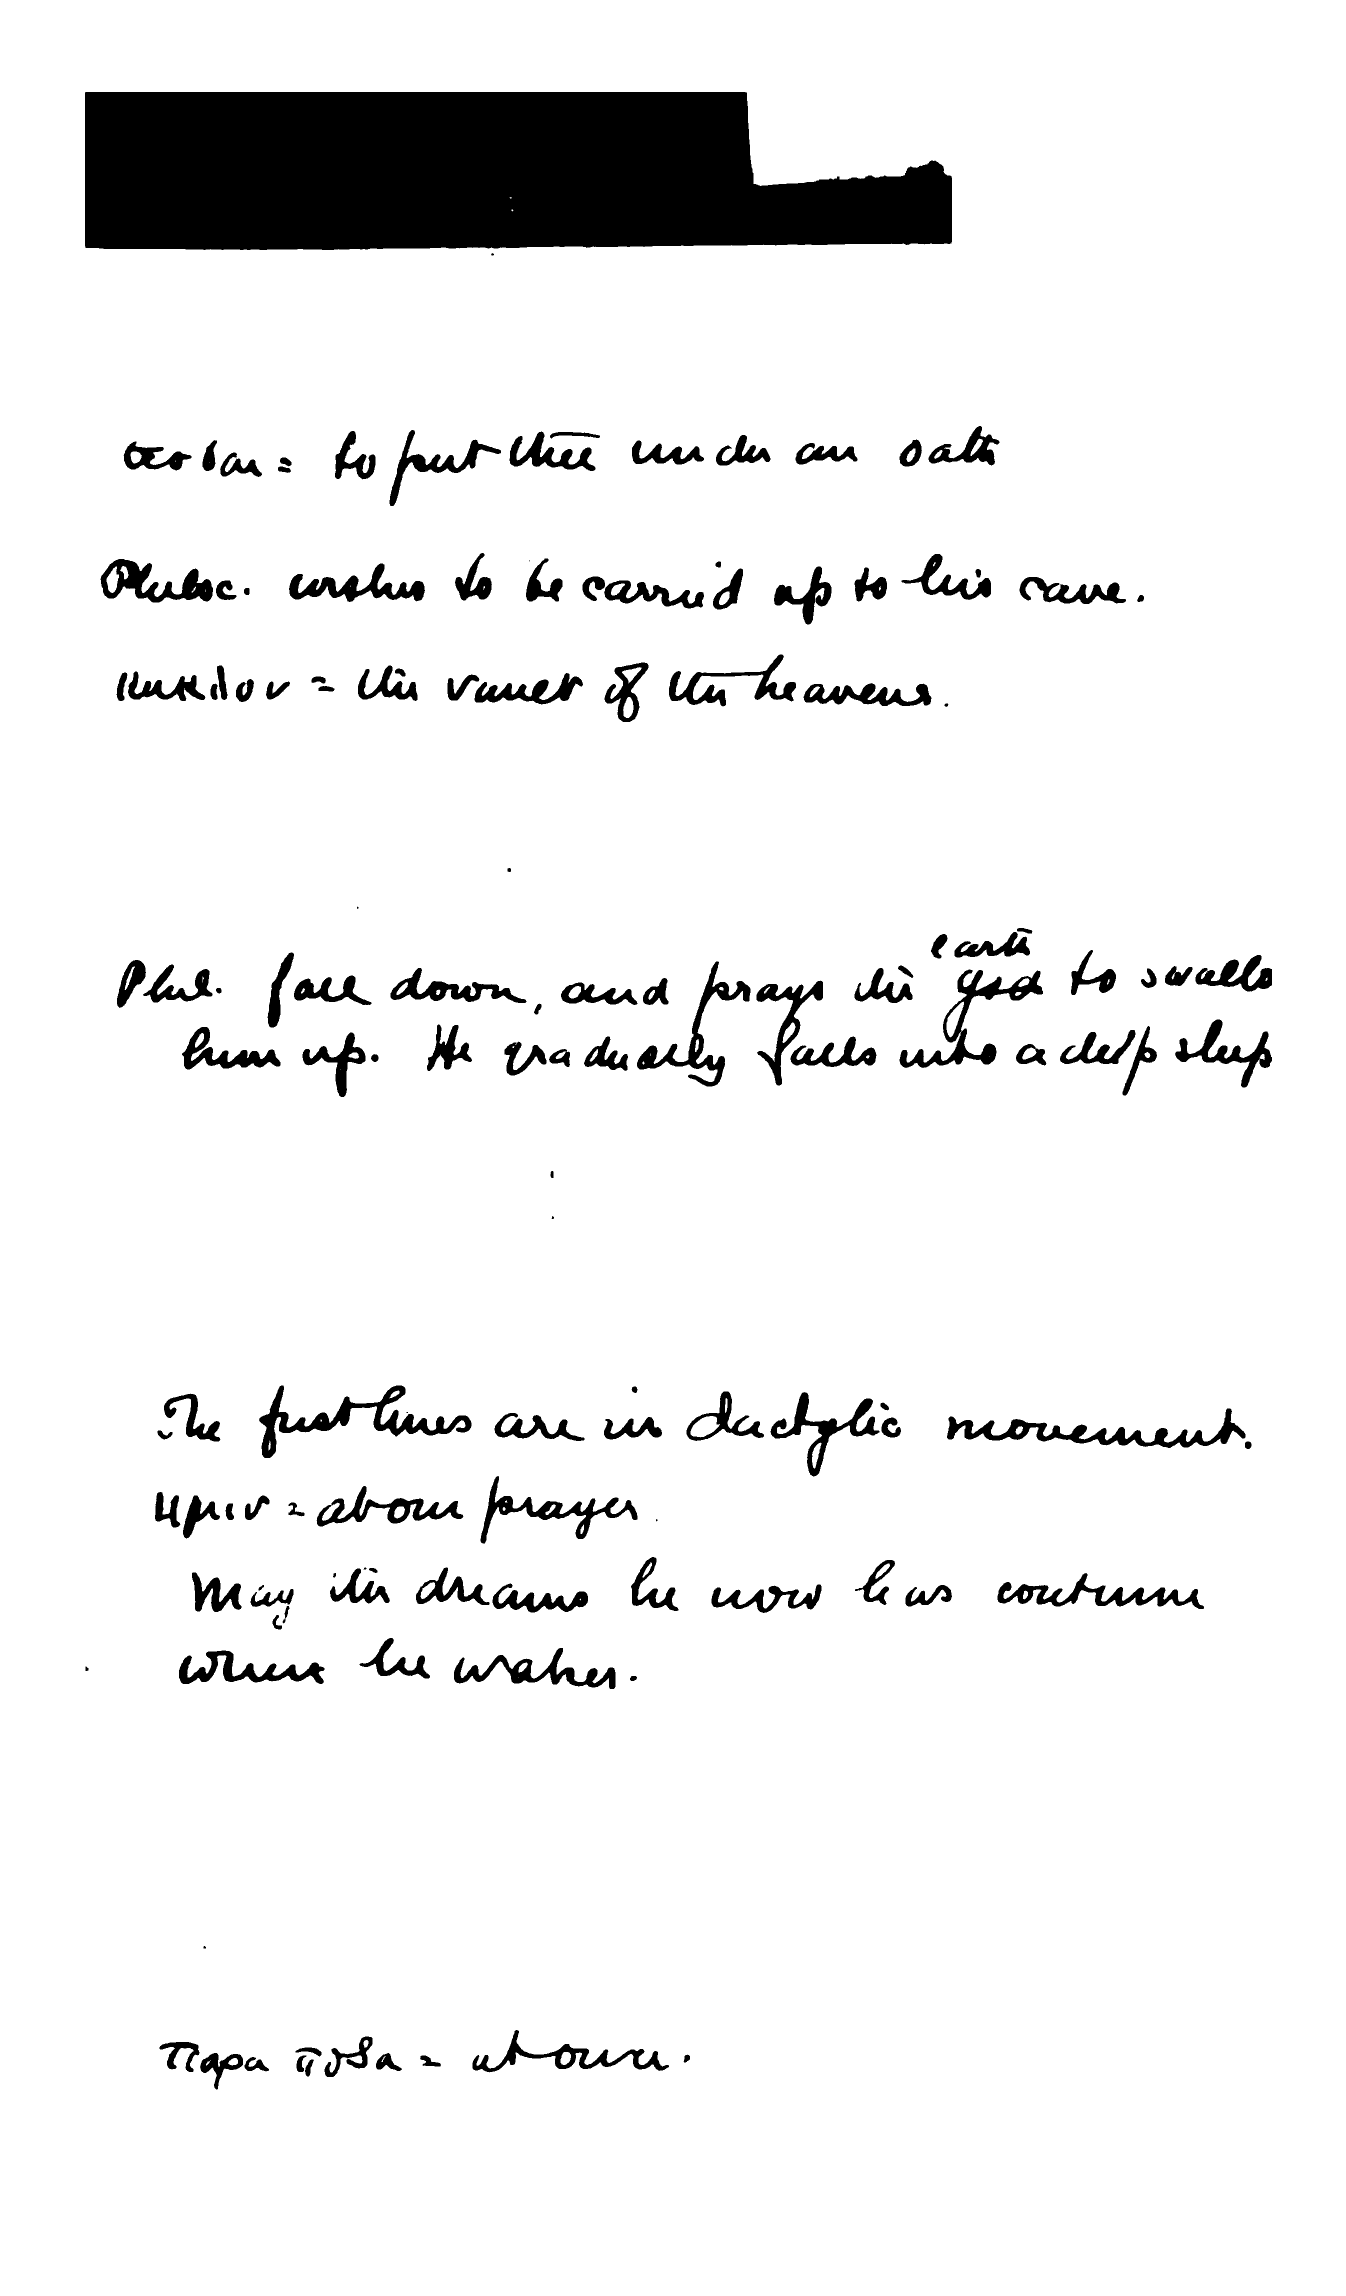 θεσθαι = to put thee under an oath
Philoc. wishes to be carried up to his cave.
κυκλον = the vault of the heavens.
Phil. fall down, and prays the god earth to swallo
him up. He gradually falls into a deep sleep
The first lines are in dactylic movement.
ημιν = about prayer
May the dreams he now has continue
when he wakes.
παρα ποδα = at once.